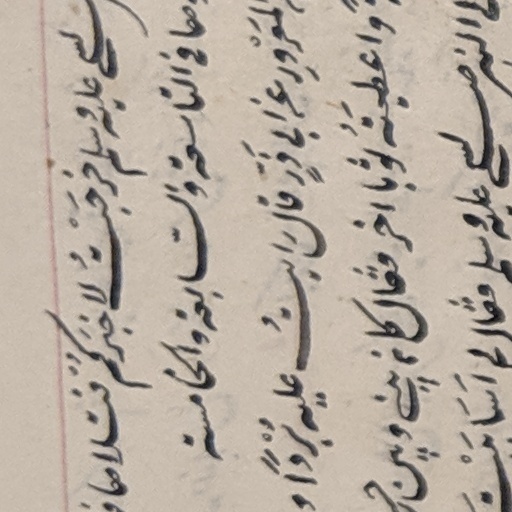 صلى الله عليه وسلم خرجَتُ لا خبَركُمْ فتلاحا
وها فى التاسعة والسّابعة والخامسة
المَعْرُورِ عن ابى ذَرٍّ قال رَايتُ عليه بُرْدًا و
واعطيتَهُ ثوبا اخر فقال كان بينى وبين
الى النبى صلى الله عليه وسلم فقال لى اَسَابَبْتَ